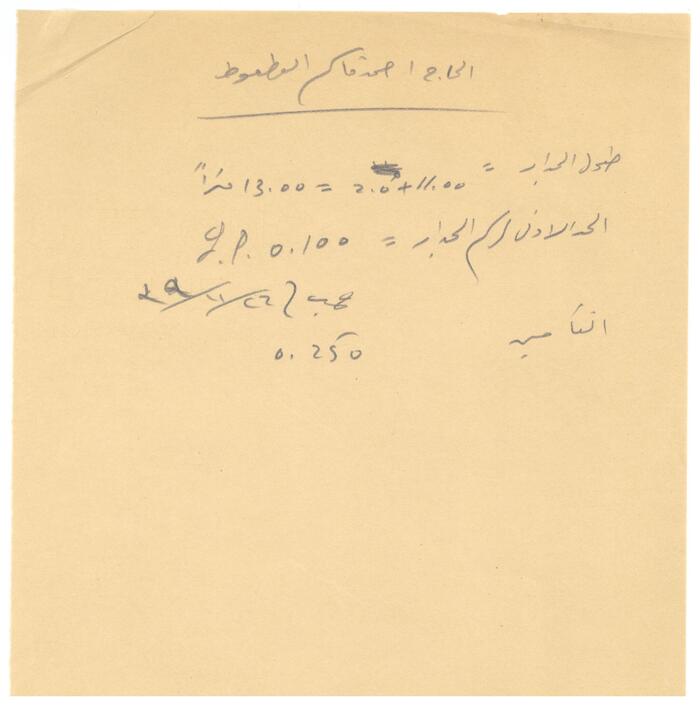 الحاج احمد قاسم العطعوط
طول الجدار = 2.0+11.00 = 13.00 متراً
الحد الادنى لرسم الجدار = 0.100 L.P.
التأمين
0.250